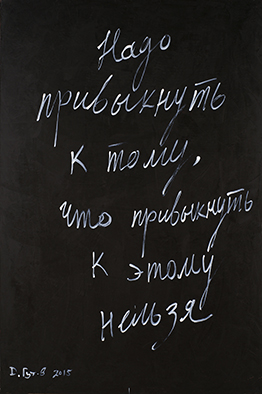 Надо
привыкнуть
к тому,
что привыкнуть
к этому
нельзя
D. Гут-в 2015